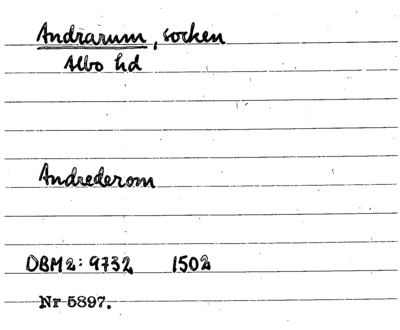 Andrarum, socken
Albo hd
Andrederom
DBM2: 9732 1502
Nr 5897.